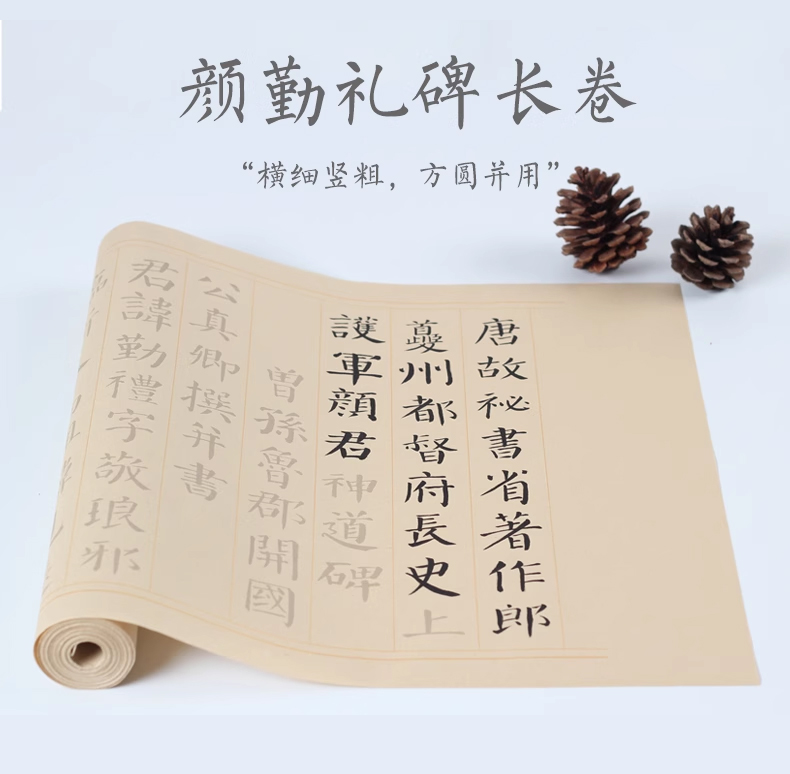 颜勤礼碑长卷
“横细竖粗，方圆并用”
唐故祕書省著作郎
夔州都督府長史上
護軍顏君神道碑
曾孫魯郡開國
公真卿撰并書
君諱勤禮字敬琅邪